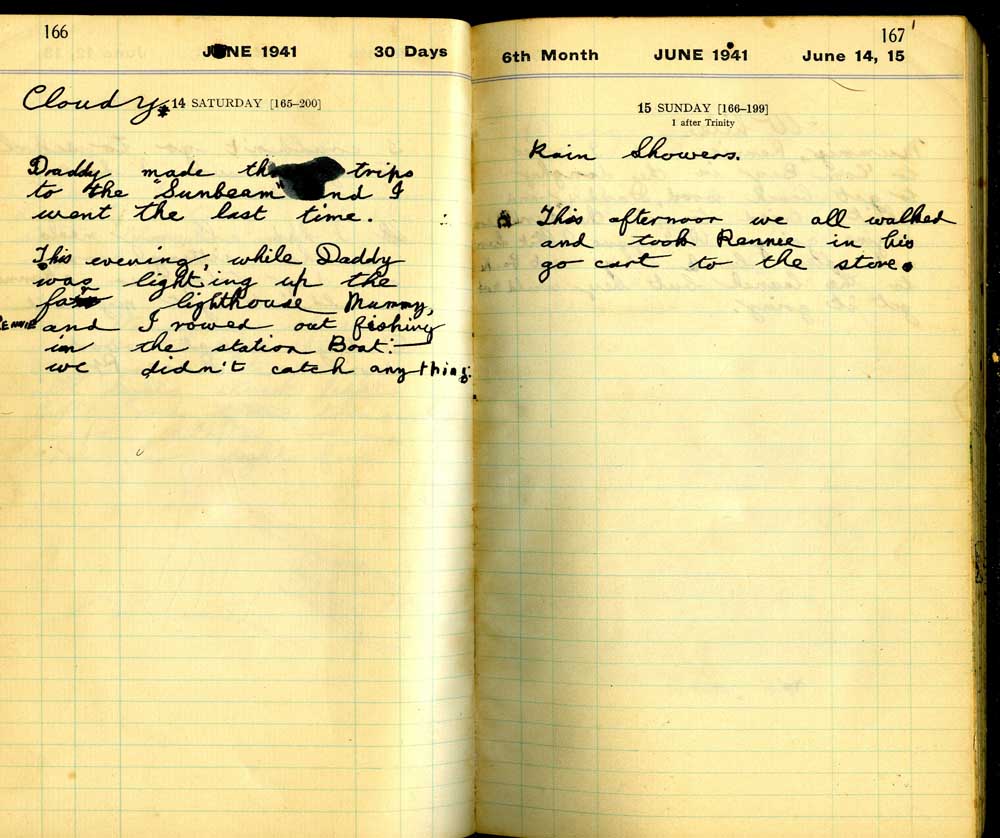 166
JUNE 1941 30 Days
Cloudy. 14 SATURDAY [165–200]
Daddy made th trips
to the "Sunbeam" and I
went the last time.
This evening, while Daddy
was lighting up the
lighthouse Mummy,
RENNIE and I rowed out fishing
in the station Boat.
we didn't catch anything.
167
6th Month JUNE 1941 June 14, 15
15 SUNDAY [166–199]
1 after Trinity
Rain Showers.
This afternoon we all walked
and took Rennee in his
go cart to the store.